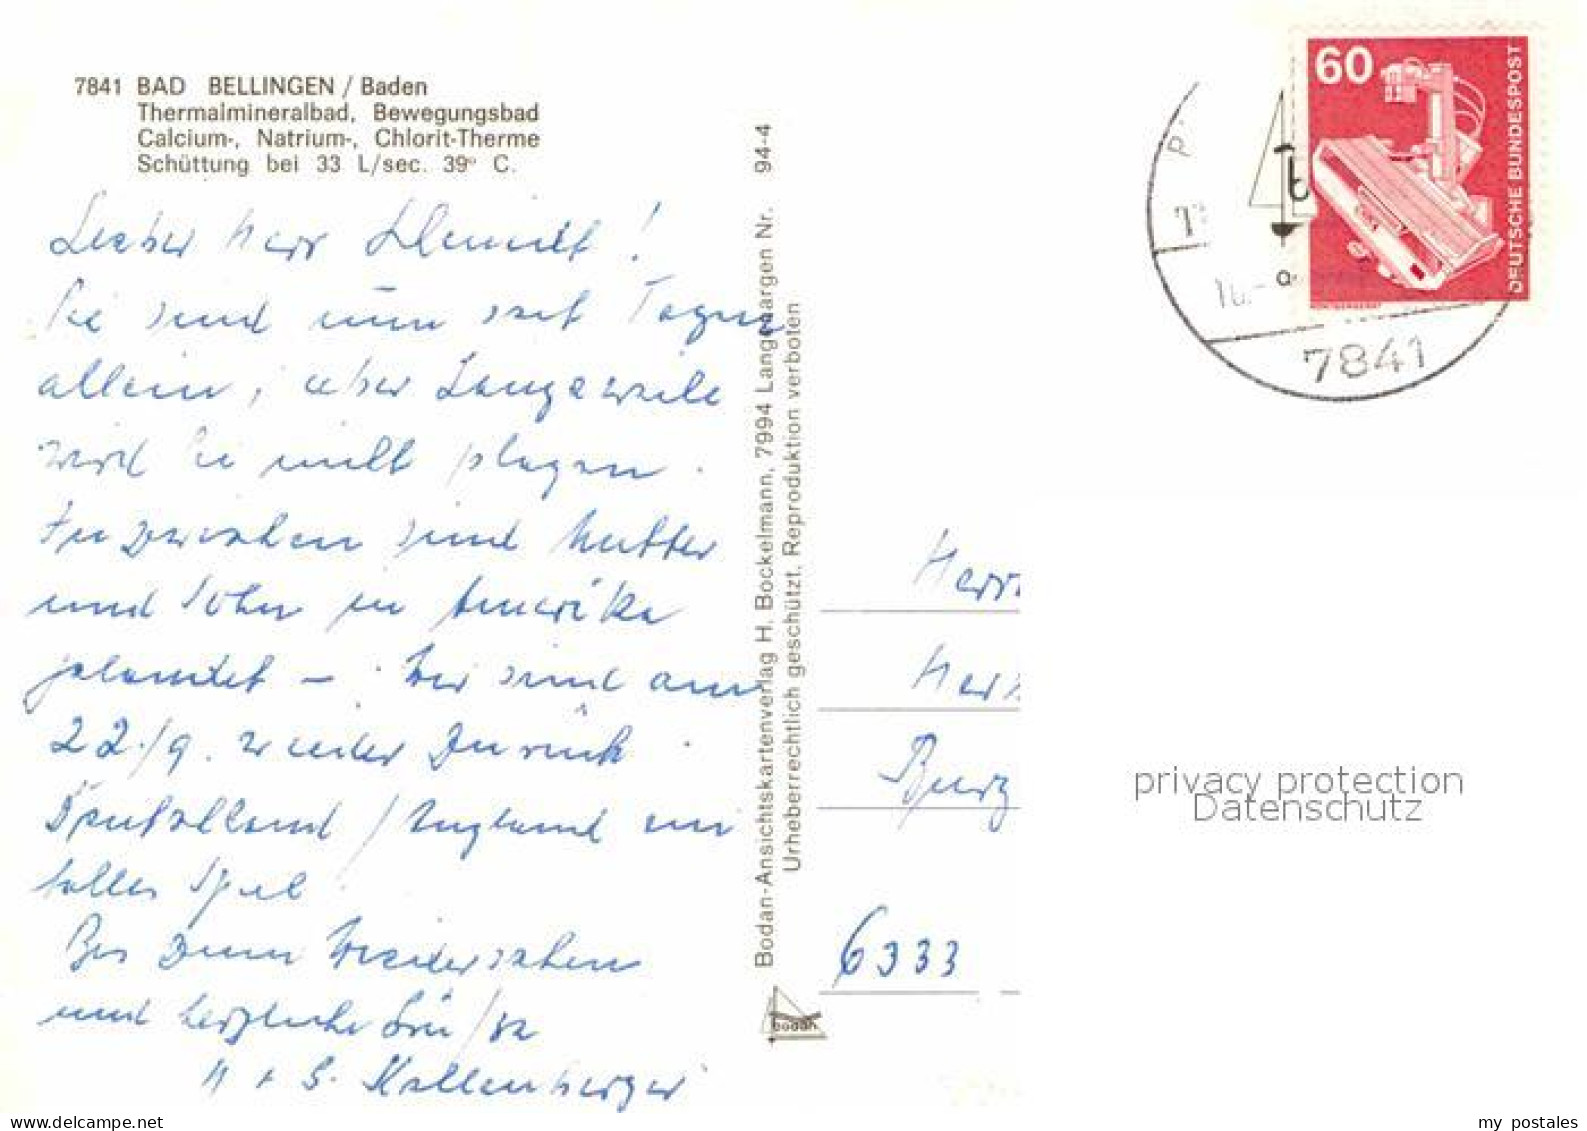 7841 BAD BELLINGEN / Baden
Thermalmineralbad, Bewegungsbad
Calcium-, Natrium-, Chlorit-Therme
Schüttung bei 33 L/sec. 39º C.
Lieber Herr Schmidt!
Sie sind nun seit Tagen
allein, aber Langeweile
wird Sie nicht plagen.
Inzwischen sind Mutter
und Sohn in Amerika
gelandet – Wir sind am
22./9. wieder zurück.
Deutschland / England ein
tolles Spiel
Bis zum Wiedersehen
und herzliche Grüße
H + G. Kallenberger
Bodan-Ansichtskartenverlag H. Bockelmann, 7994 Langenargen Nr. 94-4
Urheberrechtlich geschützt. Reproduktion verboten
bodan
60
DEUTSCHE BUNDESPOST
7841
Herrn
Burg
6333
privacy protection
Datenschutz
web-ansichtskarten.com
my postales